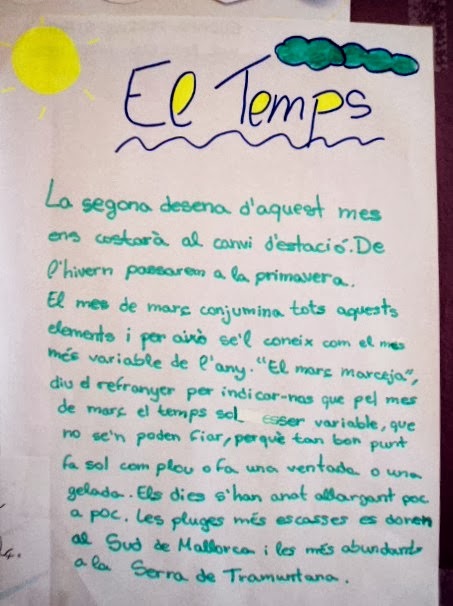 El Temps
La segona desena d'aquest mes
ens costarà al canvi d'estació. De
l'hivern passarem a la primavera.
El mes de març conjumina tots aquests
elements i per això se'l coneix com el mes
més variable de l'any. "El març marceja",
diu el refranyer per indicar-nos que pel mes
de març el temps sol esser variable, que
no se'n poden fiar, perquè tan bon punt
fa sol com plou o fa una ventada o una
gelada. Els dies s'han anat allargant poc
a poc. Les pluges més escasses es donen
al Sud de Mallorca i les més abundants
a la Serra de Tramuntana.